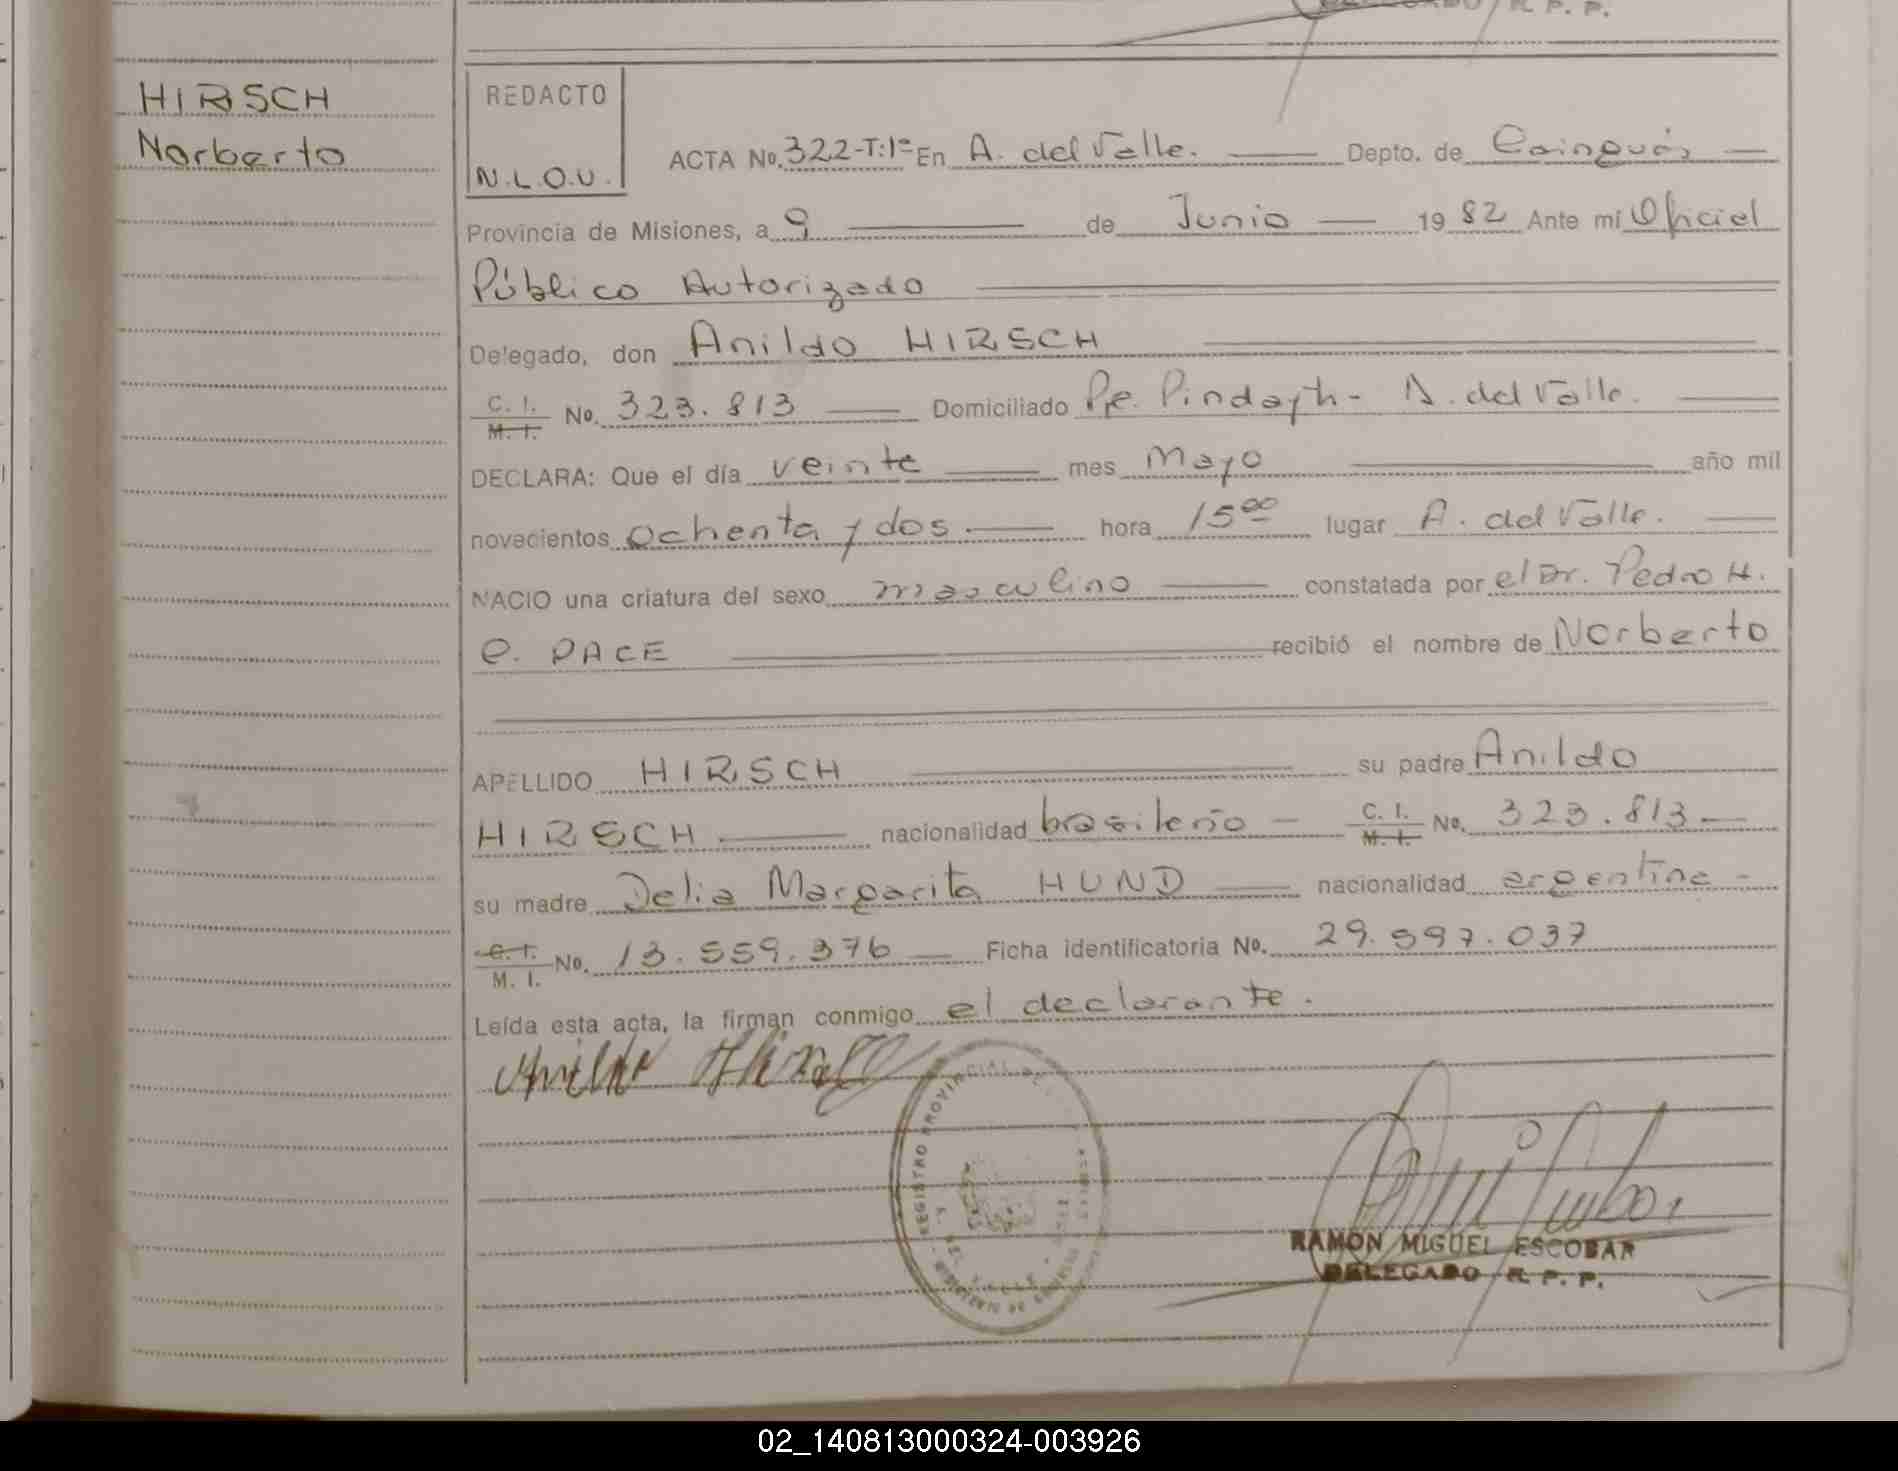 R. P. P.
HIRSCH
Norberto
REDACTO
N.L.O.U.
ACTA No. 322-T:1º En A. del Valle. Depto. de Cainguás
Provincia de Misiones, a 9 de Junio 1982 Ante mí Oficial
Público Autorizado
Delegado, don Anildo HIRSCH
C. I. M. I. No. 323.813 Domiciliado Pje. Pindayti- A. del Valle.
DECLARA: Que el día veinte mes Mayo año mil
novecientos ochenta y dos. hora 15°° lugar A. del Valle.
NACIO una criatura del sexo masculino constatada por el Dr. Pedro H.
C. PACE recibió el nombre de Norberto
APELLIDO HIRSCH su padre Anildo
HIRSCH nacionalidad brasileño - C. I. M. I. No. 323.813-
su madre Delia Margarita HUND nacionalidad argentina -
C. I. M. I. No. 13.559.376 Ficha identificatoria No. 29.597.037
Leída esta acta, la firman conmigo el declarante.
Anildo Hirsch
REGISTRO PROVINCIAL DE
RAMON MIGUEL ESCOBAR
DELEGADO R. P. P.
02_140813000324-003926